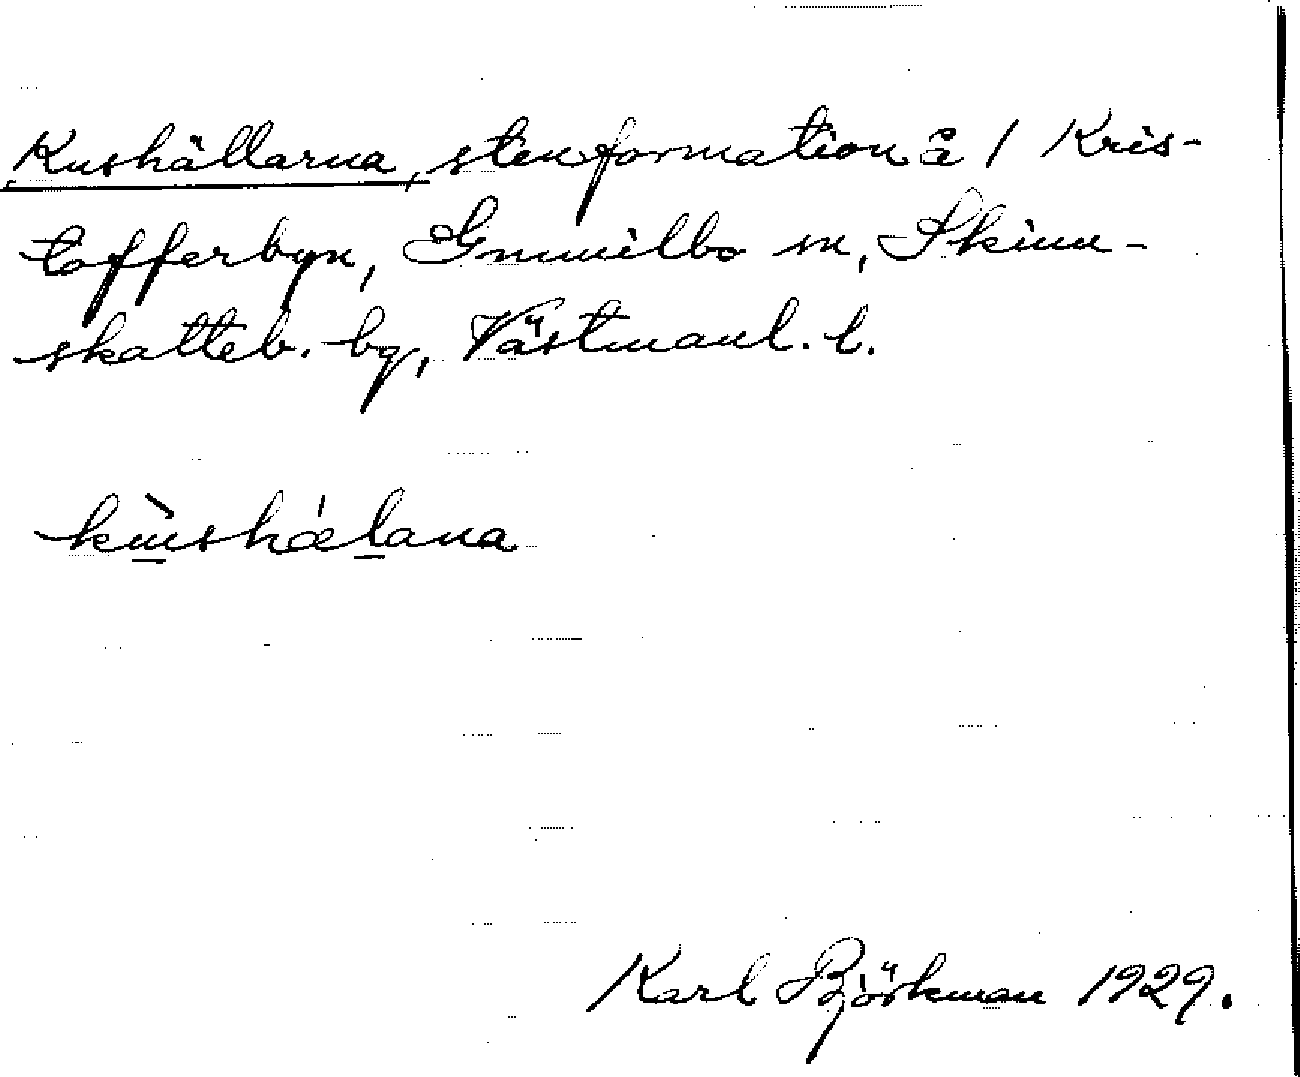 Kushällarna, stenformation å 1 Kris-
tofferbyn, Gunnilbo sn, Skinn-
skatteb. bg, Västmanl. l.
kùshǽlana
Karl Björkman 1929.